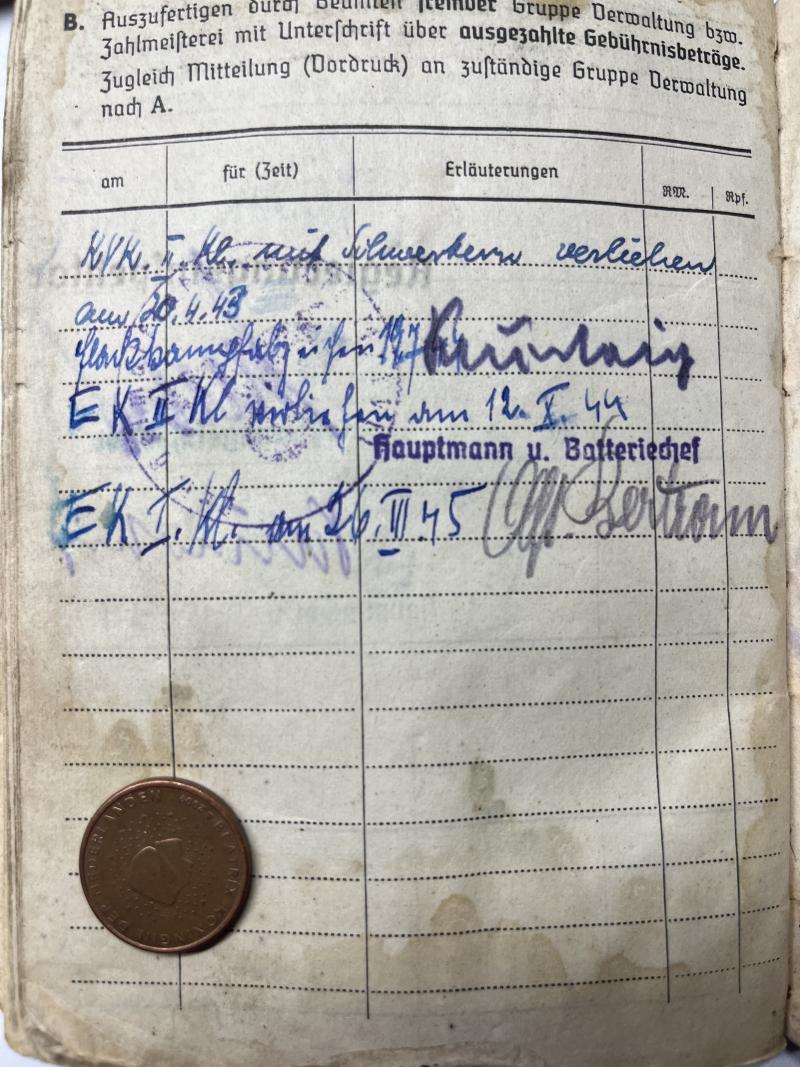 B. Auszufertigen durch Beamten fremder Gruppe Verwaltung bzw.
Zahlmeisterei mit Unterschrift über ausgezahlte Gebührnisbeträge.
Zugleich Mitteilung (Vordruck) an zuständige Gruppe Verwaltung
nach A.
am für (Zeit) Erläuterungen RM. Rpf.
KVK. II. Kl. mit Schwertern verliehen
am 20.4.43
Flakkampfabzeichen
EK II Kl verliehen am 12. X. 44
Hauptmann u. Batteriechef
EK I. Kl. am 26. III. 45 Bertram
BEATRIX KONINGIN DER NEDERLANDEN